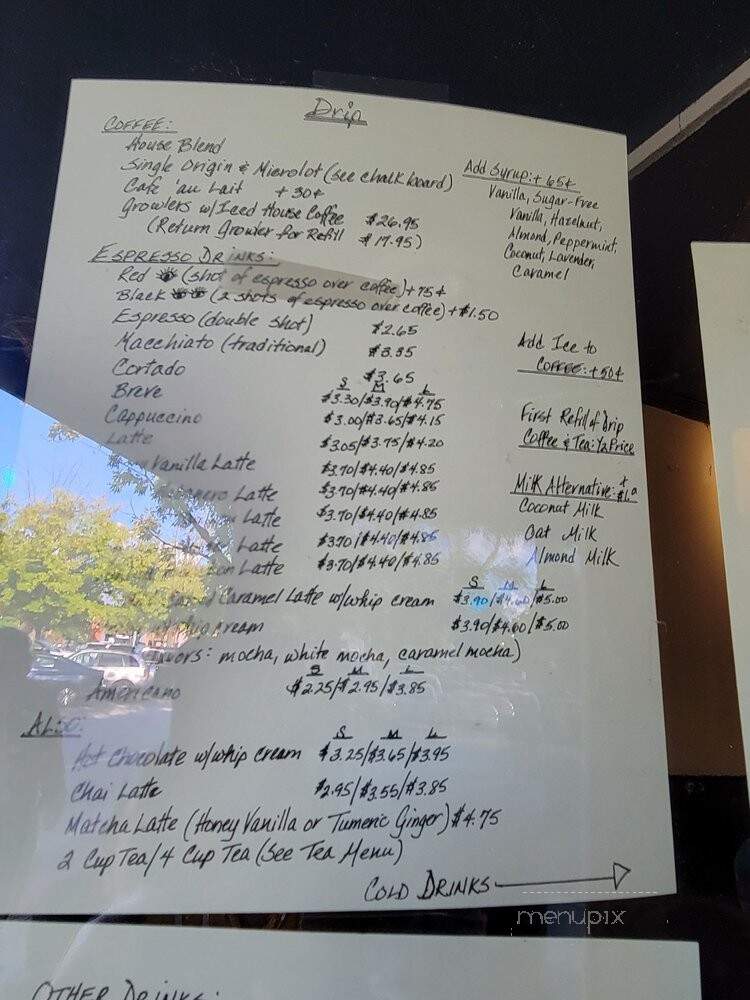 Drip
COFFEE:
House Blend
Single Origin & Microlot (see chalk board)
Cafe 'au Lait +30¢
Growlers w/Iced House Coffee $26.95
(Return Growler for Refill $17.95)
ESPRESSO DRINKS:
Red (shot of espresso over coffee) +75¢
Black (2 shots of espresso over coffee) +$1.50
Espresso (double shot) $2.65
Macchiato (traditional) $3.35
Cortado $3.65
S M L
Breve $3.30/$3.90/$4.75
Cappuccino $3.00/$3.65/$4.15
Latte $3.05/$3.75/$4.20
Vanilla Latte $3.70/$4.40/$4.85
Latte $3.70/$4.40/$4.85
Latte $3.70/$4.40/$4.85
Latte $3.70/$4.40/$4.85
Latte $3.70/$4.40/$4.85
S M L
Caramel Latte w/whip cream $3.90/$4.60/$5.00
whip cream $3.90/$4.60/$5.00
mocha, white mocha, caramel mocha)
S M L
Americano $2.25/$2.95/$3.85
ALSO:
S M L
Hot Chocolate w/whip cream $3.25/$3.65/$3.95
Chai Latte $2.95/$3.55/$3.85
Matcha Latte (Honey Vanilla or Tumeric Ginger) $4.75
2 Cup Tea/4 Cup Tea (See Tea Menu)
COLD DRINKS
Add Syrup: + 65¢
Vanilla, Sugar-Free
Vanilla, Hazelnut,
Almond, Peppermint,
Coconut, Lavender,
Caramel
Add Ice to
COFFEE: +50¢
First Refill of Drip
Coffee & Tea: 1/2 Price
Milk Alternative:
Coconut Milk
Oat Milk
Almond Milk
menupix
OTHER DRINKS: